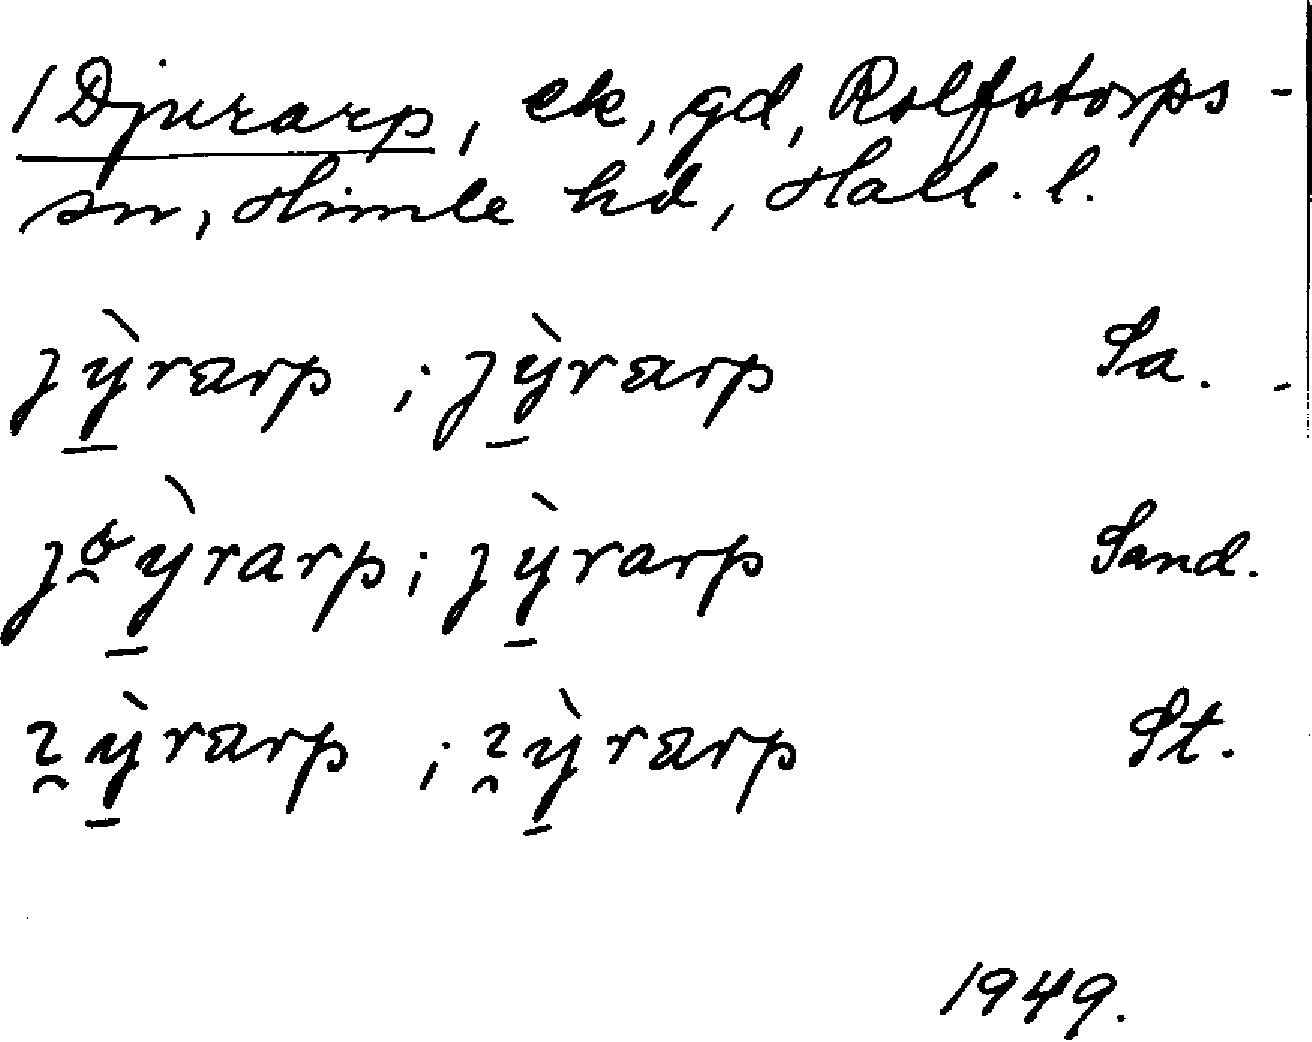 / Djurarp, ek, gd, Rolfstorps-
sn, Himle hd, Hall. l.
ȷỳ̠rarp ; ȷỳ̠rarp Sa.
ỳ̠rarp ; ȷỳ̠rarp Sand.
ỳ̠rarp ; ỳ̠rarp St.
1949.